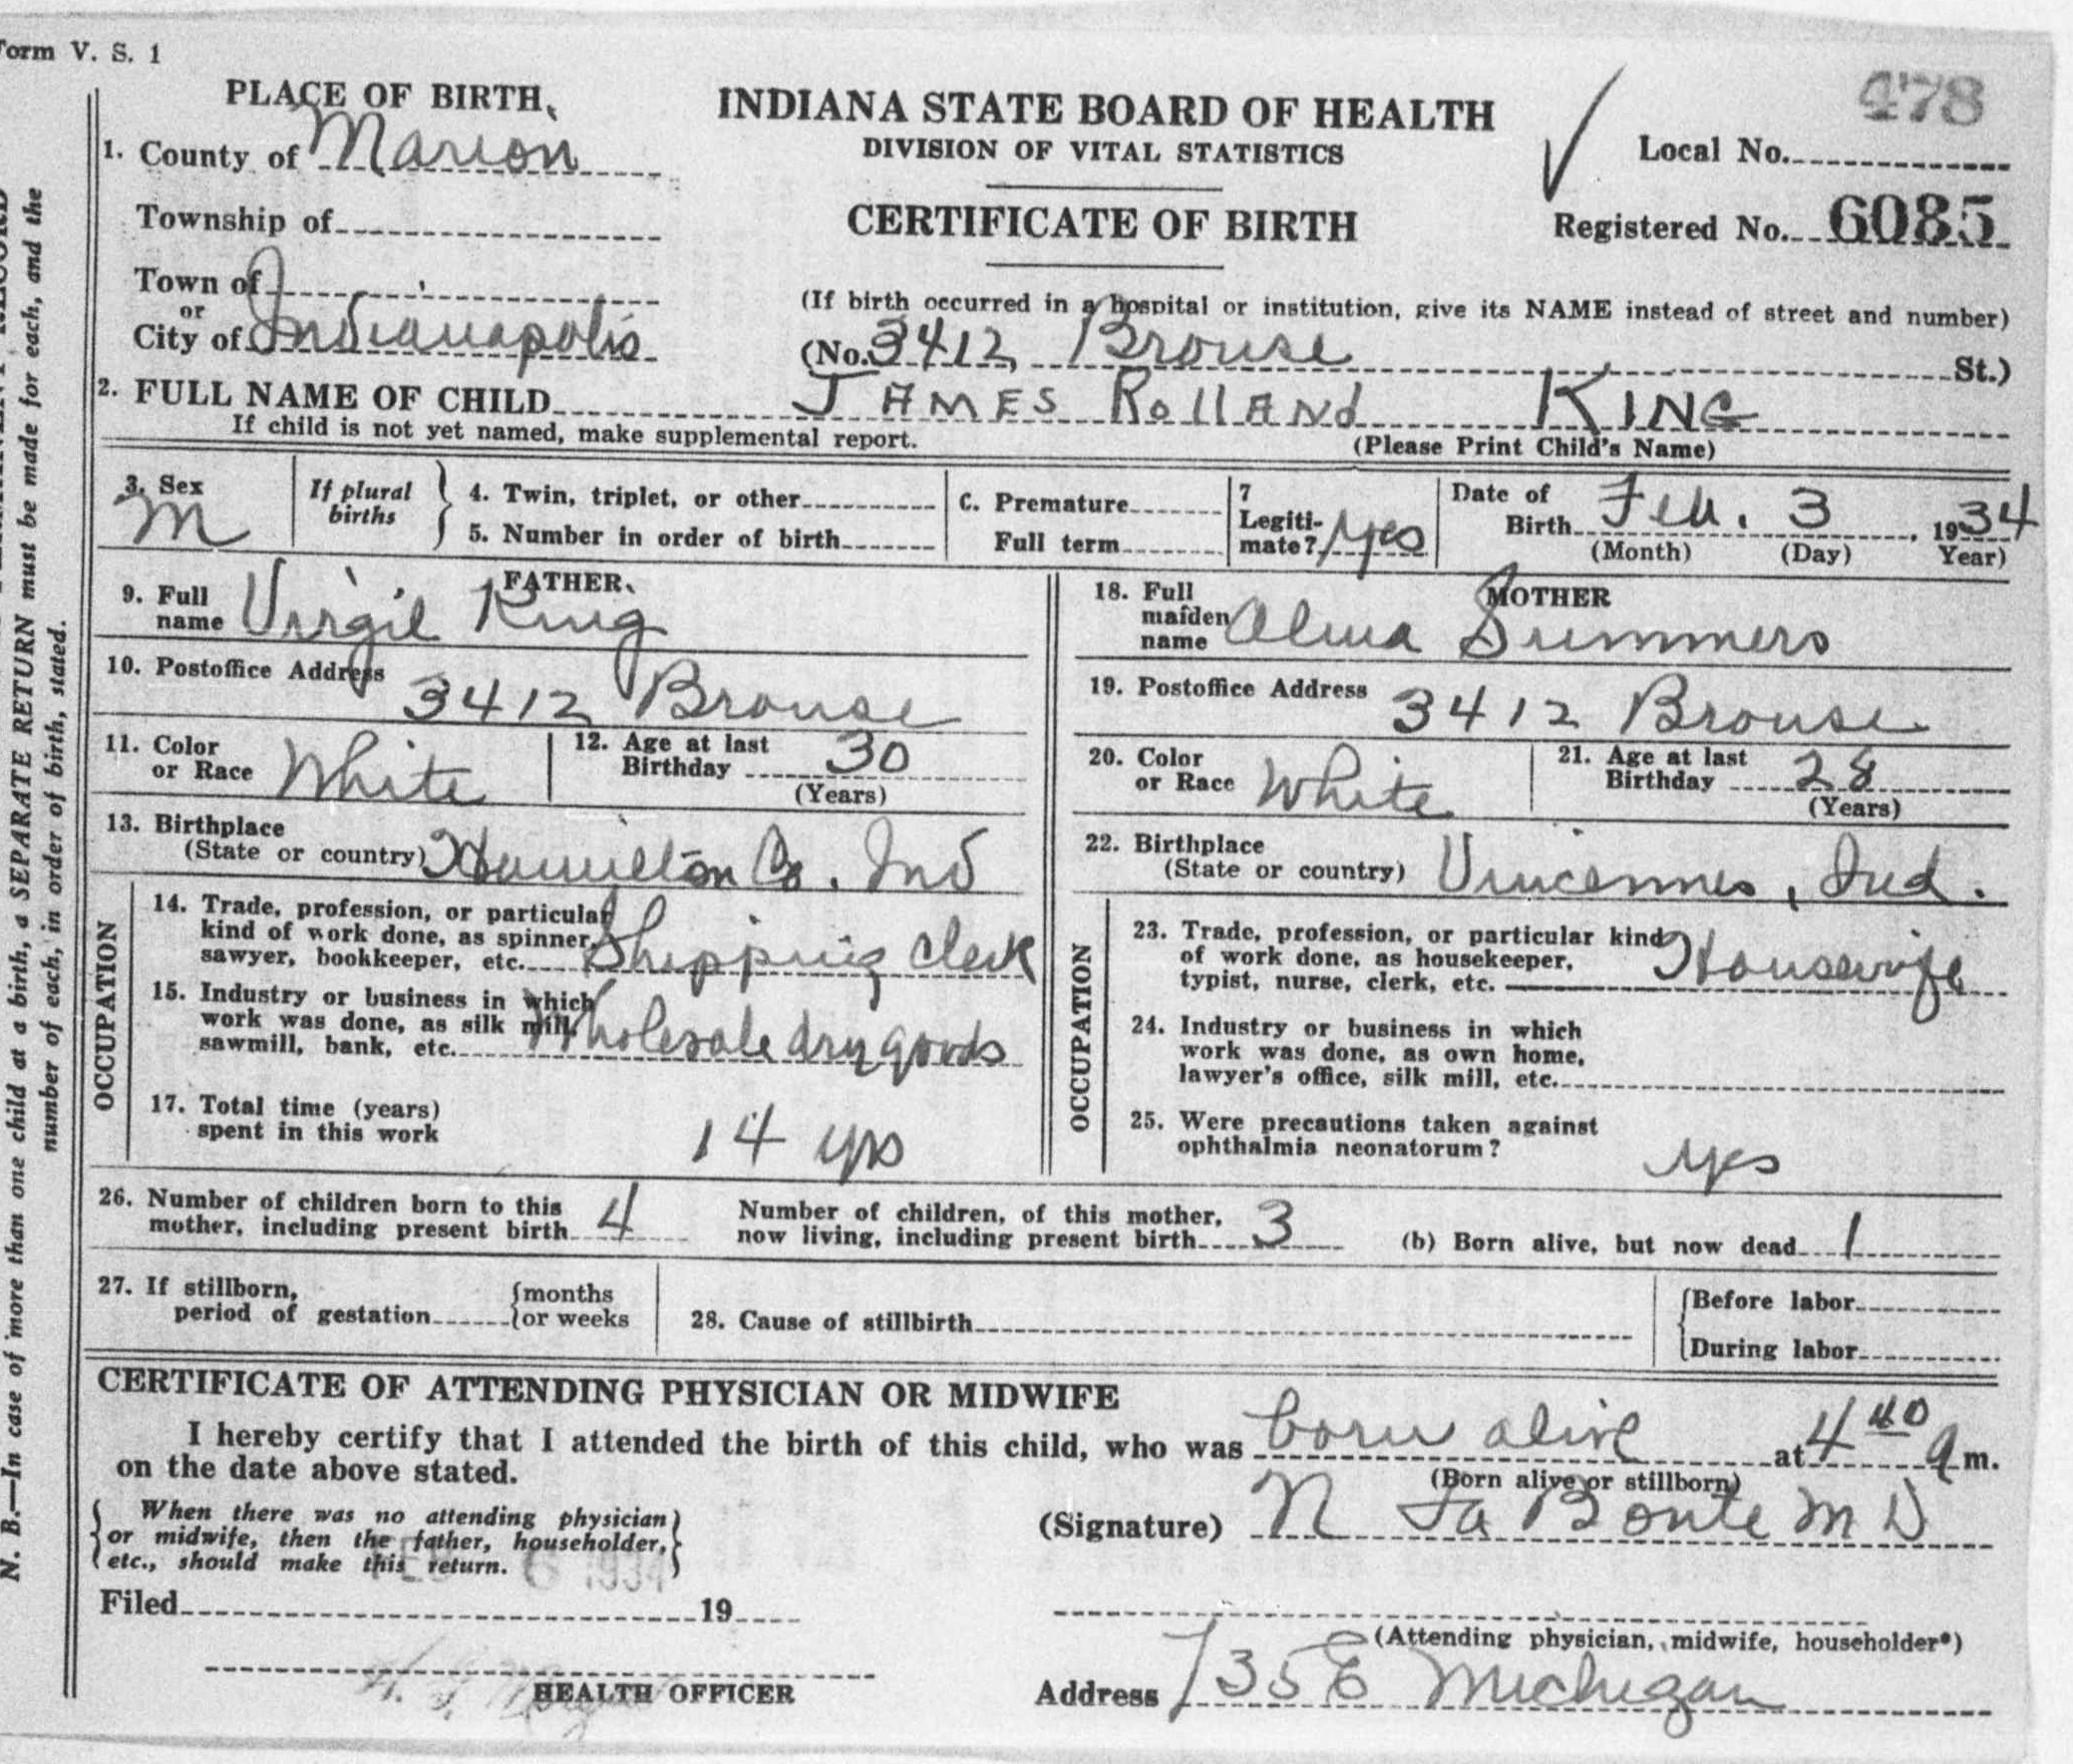 Form V. S. 1
PLACE OF BIRTH
INDIANA STATE BOARD OF HEALTH
DIVISION OF VITAL STATISTICS
CERTIFICATE OF BIRTH
478
Local No.
Registered No. 6085
1. County of Marion
Township of
Town of
or
City of Indianapolis
(If birth occurred in a hospital or institution, give its NAME instead of street and number)
(No. 3412 Brouse St.)
2. FULL NAME OF CHILD JAMES RollANd KING
If child is not yet named, make supplemental report.
(Please Print Child's Name)
3. Sex M
If plural births
4. Twin, triplet, or other
5. Number in order of birth
C. Premature
Full term
7 Legiti-
mate? yes
Date of
Birth Feb. 3, 1934
(Month) (Day) Year)
FATHER
9. Full
name Virgil King
10. Postoffice Address 3412 Brouse
11. Color
or Race White
12. Age at last
Birthday 30
(Years)
13. Birthplace
(State or country) Hamilton Co. Ind
OCCUPATION
14. Trade, profession, or particular
kind of work done, as spinner,
sawyer, bookkeeper, etc. Shipping Clerk
15. Industry or business in which
work was done, as silk mill,
sawmill, bank, etc. Wholesale dry goods
17. Total time (years)
spent in this work 14 yrs
MOTHER
18. Full
maiden
name Alma Summers
19. Postoffice Address 3412 Brouse
20. Color
or Race White
21. Age at last
Birthday 28
(Years)
22. Birthplace
(State or country) Vincennes, Ind.
OCCUPATION
23. Trade, profession, or particular kind
of work done, as housekeeper,
typist, nurse, clerk, etc. Housewife
24. Industry or business in which
work was done, as own home,
lawyer's office, silk mill, etc.
25. Were precautions taken against
ophthalmia neonatorum? yes
26. Number of children born to this
mother, including present birth 4
Number of children, of this mother,
now living, including present birth 3
(b) Born alive, but now dead 1
27. If stillborn,
period of gestation
months
or weeks
28. Cause of stillbirth
Before labor
During labor
CERTIFICATE OF ATTENDING PHYSICIAN OR MIDWIFE
I hereby certify that I attended the birth of this child, who was born alive at 4 40 a m.
on the date above stated.
(Born alive or stillborn)
When there was no attending physician
or midwife, then the father, householder,
etc., should make this return.
(Signature) N La Bonte M D
FEB 6 1934
Filed 19
(Attending physician, midwife, householder*)
HEALTH OFFICER
Address 735 E Michigan
N. B.—In case of more than one child at a birth, a SEPARATE RETURN must be made for each, and the
number of each, in order of birth, stated.